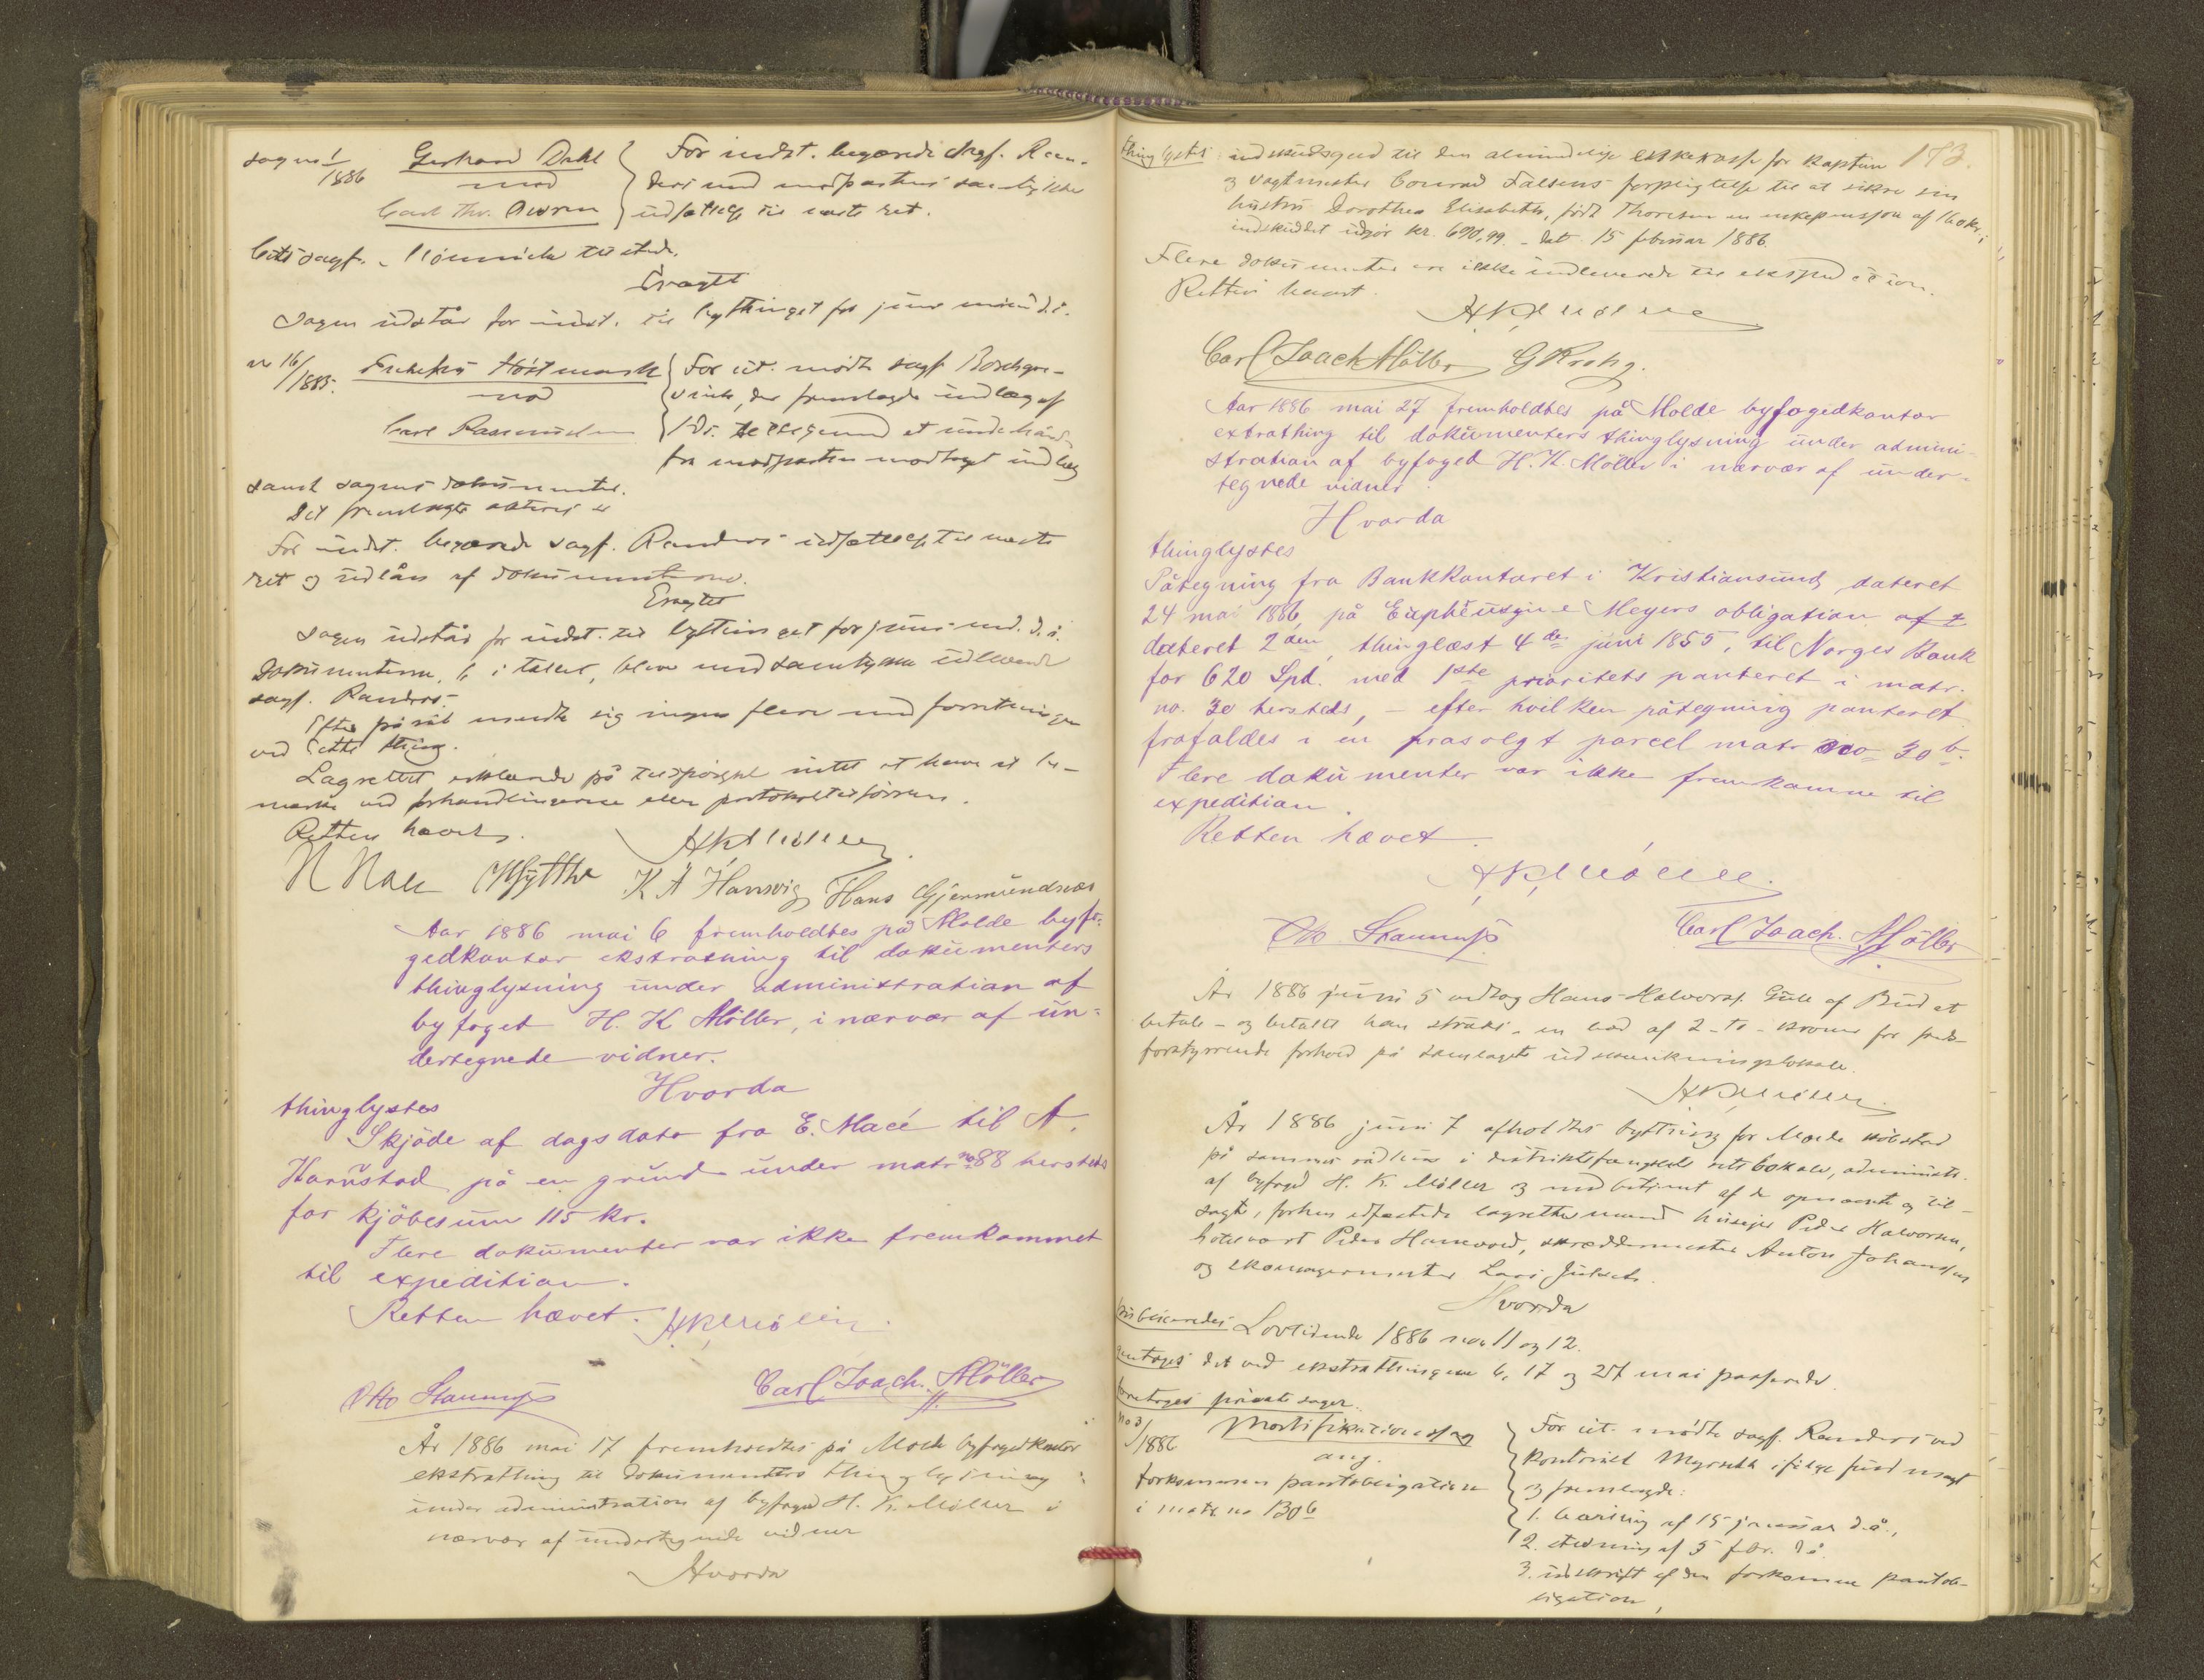 sag no 1/1886 Gerhard Dahl
mod
Carl Thr. Owren
For indst. begærede sagf. Ran-
ders med modpartens samtykke
udsættelse til næste ret.
sagf. tilstede.
Eragtet
Sagen udstår for indst. til bythinget for juni måned d. å.
no 16/1885. Høstmark
mod
Carl Rasmussen
For cit. mødte sagf. Borchgre-
vink, der fremlagde indlæg af
et underhånden
fra modparten modtaget indlæg
samt sagens dokumenter.
Det fremlagte akteres
For indst. begærede sagf. Randers udsættelse til næste
ret og udlån af dokumenterne.
Eragtet
Sagen udstår for indst. til bythinget for juni md. d. å.
Dokumenterne, 6 i tallet, blev med samtykke udleveret
sagf. Randers.
Efter påråb meldte sig ingen flere med forretninger
ved dette thing.
Lagrettet erklærede på tilspørgsel intet at have at be-
mærke ved forhandlingerne eller protokoltilførselen.
Retten hævet.
HKMöller
K A Hansvig Hans Gjermundnæs
Aar 1886 mai 6 fremholdtes på Molde byfo-
gedkontor ekstrathing til dokumenters
thinglysning under administration af
byfoget H. K Möller, i nærvær af un-
dertegnede vidner.
Hvorda
thinglystes
Skjöde af dags dato fra E. Macé til A.
Harustad på en grund under matr no 88 hersteds
for kjöbesum 115 kr.
Flere dokumenter var ikke fremkommet
til expedition.
Retten hævet. HKMöller.
Otto Carl Joach. Möller
År 1886 mai 17 fremholdtes på Molde byfogedkontor
ekstrathing til dokumenters thinglysning
under administration af byfoged H. K. Möller i
nærvær af undertegnede vidner
Hvorda
173.
thinglystes indskudsgjeld til den almindelige enkekasse for kaptein
og vagtmester Conrad Falsens forpligtelse til at sikre sin
hustru Dorothea Elisabeth, født Thoresen en enkepension af 160 kr.;
indskuddet udgjör kr. 690,99. - Dat. 15 februar 1886.
Flere dokumenter ere ikke indleverede til ekspedition.
Retten hævet.
HKMöller
Carl Joach Möller G Krohg.
Aar 1886 mai 27 fremholdtes på Molde byfogedkontor
extrathing til dokumenters thinglysning under admini-
stration af byfoged H. K. Möller i nærvær af under-
tegnede vidner.
Hvorda
thinglystes
Påtegning fra Bankkontoret i Kristiansund, dateret
24 mai 1886, på Meyers obligation af
dateret 2den, thinglæst 4de juni 1855, til Norges Bank
for 620 Spd. med 1ste prioritets panteret i matr.
no. 30 hersteds, - efter hvilken påtegning panteret
frafaldes i en frasolgt parcel matr no 30 b.
Flere dokumenter var ikke fremkomne til
expedition.
Retten hævet.
HKMöller.
Otto Carl Joach. Möller
År 1886 juni 5 vedtog Hans Halvors. Gule af Bud at
betale - og betalte han straks - en bod af 2 - to - kroner for freds-
forstyrrende forhold på samlagets udskænkningslokale.
HKMöller.
År 1886 juni 7 afholdtes bything for Molde kjöbstad
på sammes rådhus i distriktsfængslets retslokale, administr.
af byfoged H. K. Möller og med betjent af de opnævnte og til-
sagte, forhen edfæstede lagrettesmænd huseier Peder Halvorsen,
hotelvært Peder skræddermester Anton Johansen
og skomagermester Lars
Hvorda
publiceredes Lovtidende 1886 no. 11 og 12.
gjentoges det ved ekstrathingene 6, 17 og 27 mai passerede.
foretoges private sager.
no 3/1886 Mortifikationssag
ang.
forkommen pantobligation
i matr. no 130 b
For cit. mødte sagf. Randers ved
kontorist ifølge fuldmagt
og fremlagde:
1. bevilling af 15 januar d. å.,
2. stevning af 5 febr. d. å.
3. udskrift af den forkomne pantob-
ligation,